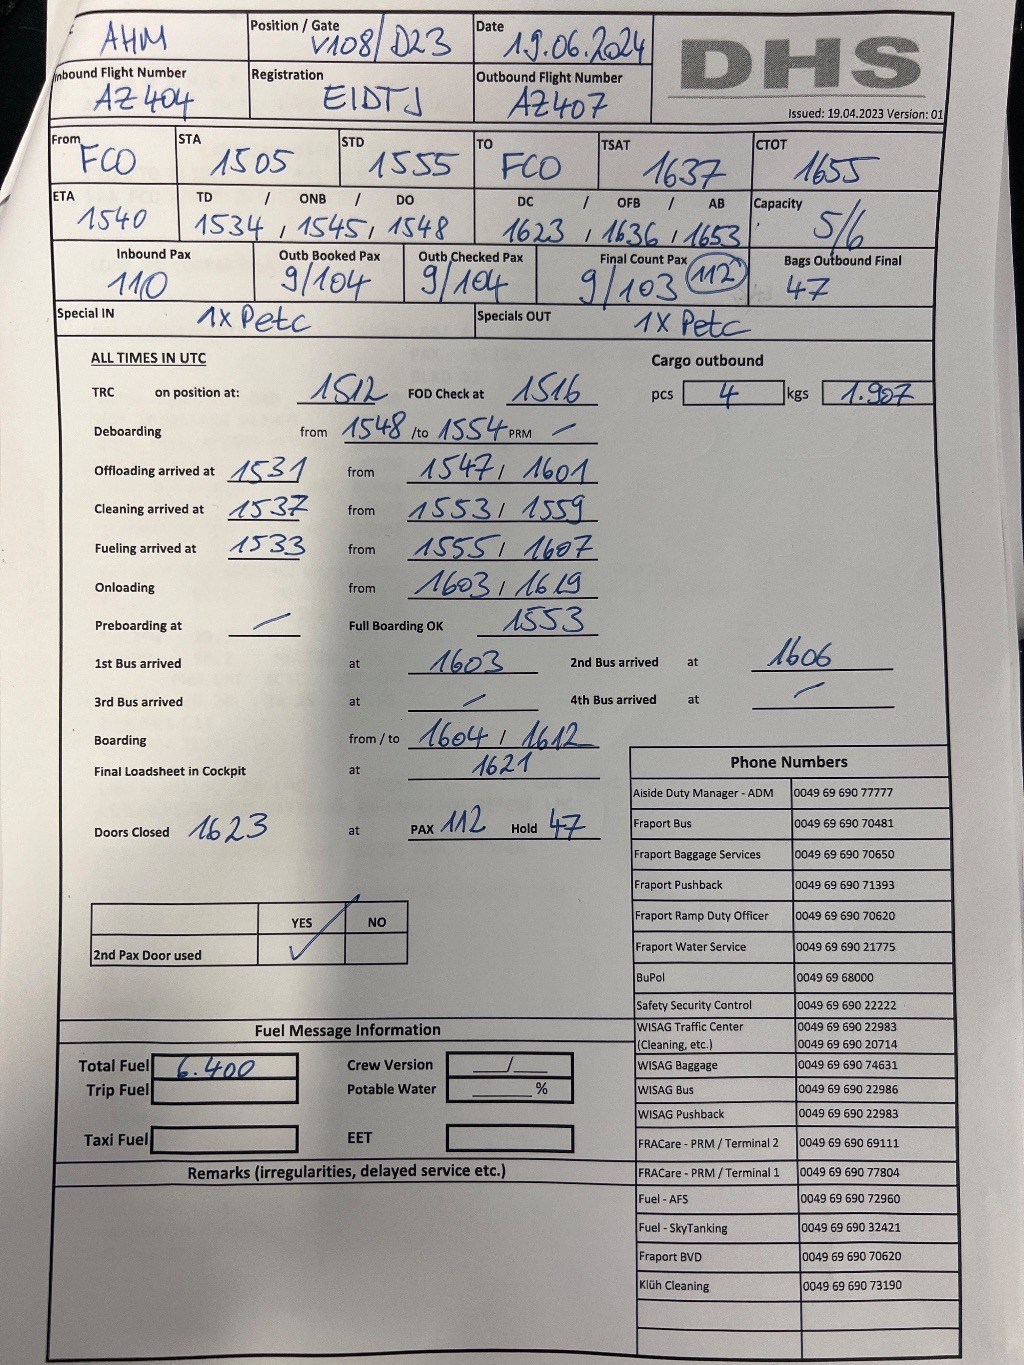 AHM
Position / Gate V108/D23
Date 19.06.2024
DHS
Inbound Flight Number AZ404
Registration EIDTJ
Outbound Flight Number AZ407
Issued: 19.04.2023 Version: 01
From FCO
STA 1505
STD 1555
TO FCO
TSAT 1637
CTOT 1655
ETA 1540
TD / ONB / DO
1534 , 1545 , 1548
DC / OFB / AB
1623 , 1636 , 1653
Capacity 5/6
Inbound Pax 110
Outb Booked Pax 9/104
Outb Checked Pax 9/104
Final Count Pax 9/103 112
Bags Outbound Final 47
Special IN 1x Petc
Specials OUT 1x Petc
ALL TIMES IN UTC
Cargo outbound
TRC on position at: 1512 FOD Check at 1516
pcs 4 kgs 1.907
Deboarding from 1548 /to 1554 PRM /
Offloading arrived at 1531 from 1547 / 1601
Cleaning arrived at 1537 from 1553 / 1559
Fueling arrived at 1533 from 1555 / 1607
Onloading from 1603 / 1619
Preboarding at / Full Boarding OK 1553
1st Bus arrived at 1603 2nd Bus arrived at 1606
3rd Bus arrived at / 4th Bus arrived at /
Boarding from / to 1604 / 1612
Final Loadsheet in Cockpit at 1621
Doors Closed 1623 at PAX 112 Hold 47
YES NO
2nd Pax Door used ✓
Fuel Message Information
Total Fuel 6.400
Trip Fuel
Crew Version ___/___
Potable Water ______ %
Taxi Fuel
EET
Remarks (irregularities, delayed service etc.)
Phone Numbers
Aiside Duty Manager - ADM 0049 69 690 77777
Fraport Bus 0049 69 690 70481
Fraport Baggage Services 0049 69 690 70650
Fraport Pushback 0049 69 690 71393
Fraport Ramp Duty Officer 0049 69 690 70620
Fraport Water Service 0049 69 690 21775
BuPol 0049 69 68000
Safety Security Control 0049 69 690 22222
WISAG Traffic Center 0049 69 690 22983
(Cleaning, etc.) 0049 69 690 20714
WISAG Baggage 0049 69 690 74631
WISAG Bus 0049 69 690 22986
WISAG Pushback 0049 69 690 22983
FRACare - PRM / Terminal 2 0049 69 690 69111
FRACare - PRM / Terminal 1 0049 69 690 77804
Fuel - AFS 0049 69 690 72960
Fuel - SkyTanking 0049 69 690 32421
Fraport BVD 0049 69 690 70620
Klüh Cleaning 0049 69 690 73190